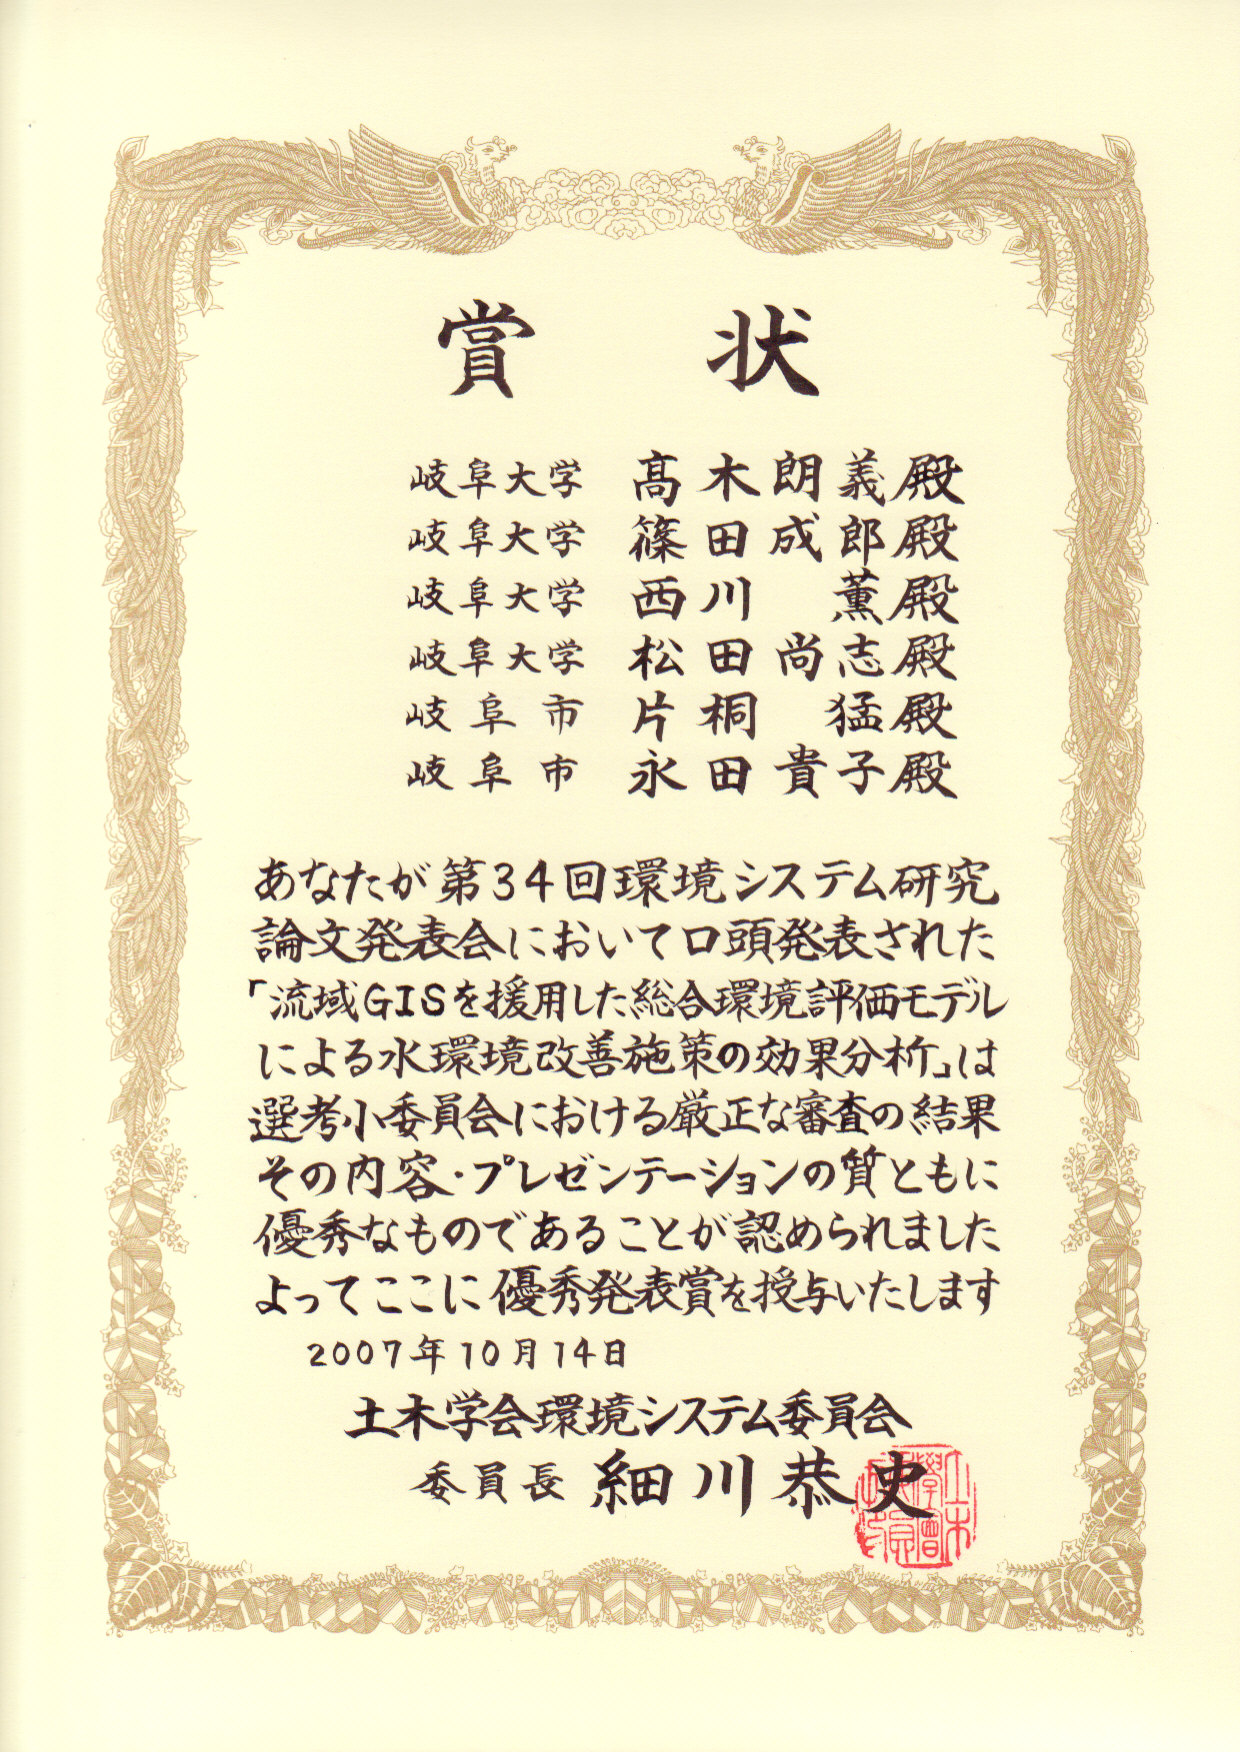 賞状
岐阜大学 髙木朗義殿
岐阜大学 篠田成郎殿
岐阜大学 西川薫殿
岐阜大学 松田尚志殿
岐阜市 片桐猛殿
岐阜市 永田貴子殿
あなたが第34回環境システム研究
論文発表会において口頭発表された
「流域GISを援用した総合環境評価モデル
による水環境改善施策の効果分析」は
選考小委員会における厳正な審査の結果
その内容・プレゼンテーションの質ともに
優秀なものであることが認められました
よってここに優秀発表賞を授与いたします
2007年10月14日
土木学会環境システム委員会
委員長 細川恭史